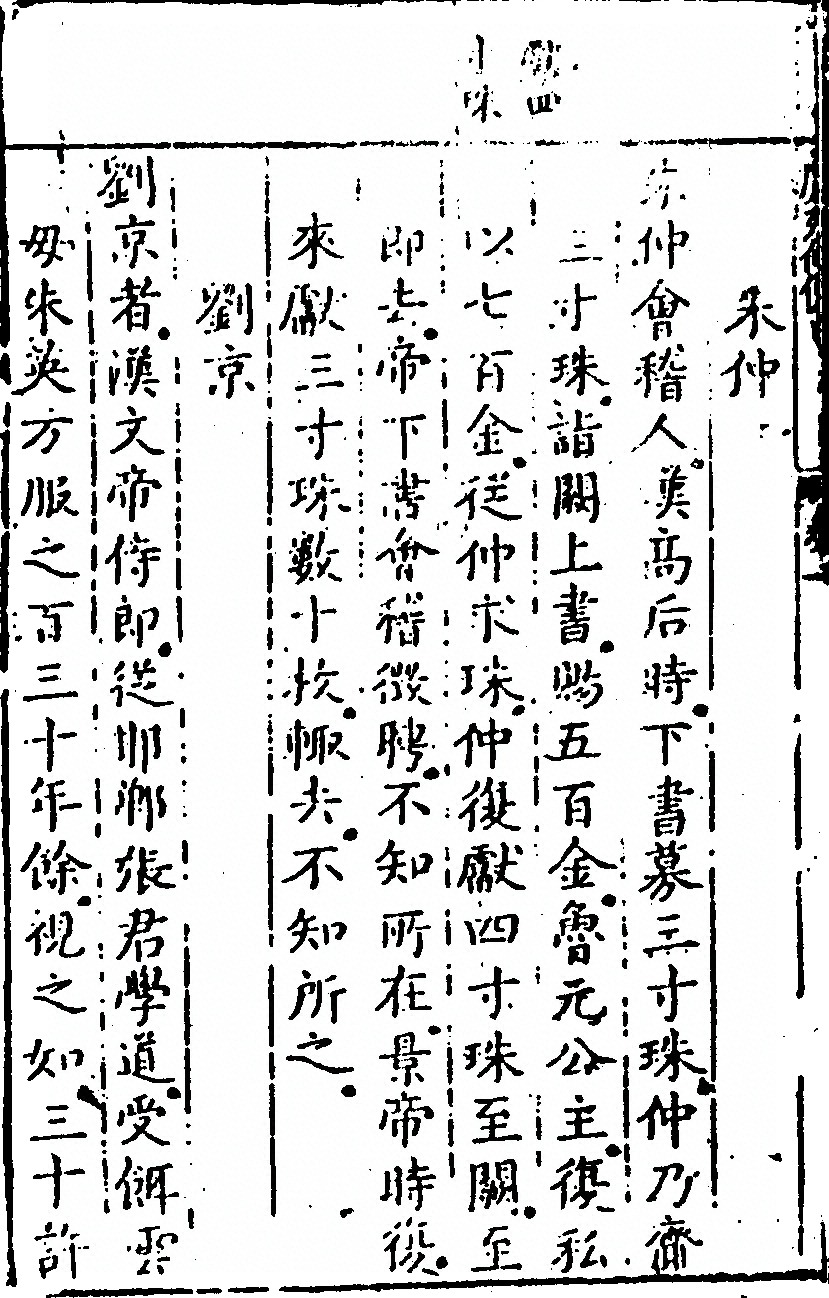 獻四
寸珠
朱仲
朱仲會稽人漢高后時下書募三寸珠仲乃齎
三寸珠詣闕上書賜五百金魯元公主復私
以七百金從仲求珠仲復獻四寸珠至闕至
即去帝下書會稽徵聘不知所在景帝時復
來獻三寸珠數十枚輙去不知所之
劉京
劉京者漢文帝侍郎從邯鄲張君學道受餌雲
母朱英方服之百三十年餘視之如三十許